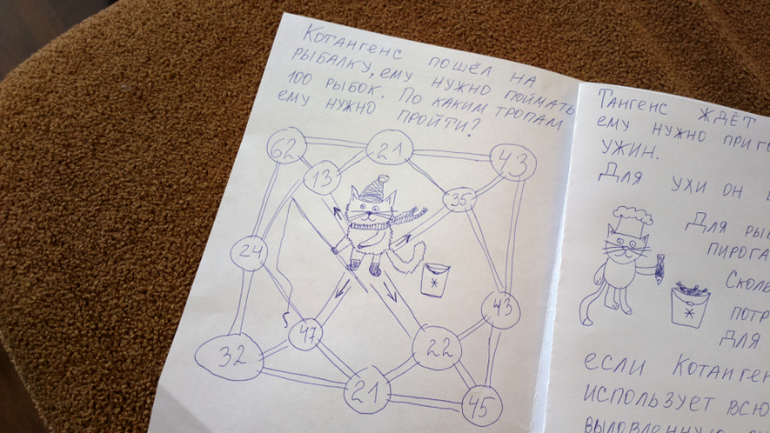 КОТАНГЕНС ПОШЁЛ НА
РЫБАЛКУ, ЕМУ НУЖНО ПОЙМАТЬ
100 РЫБОК. ПО КАКИМ ТРОПАМ
ЕМУ НУЖНО ПРОЙТИ?
62
21
43
13
35
24
47
43
32
22
21
45
ТАНГЕНС ЖДЁТ
ЕМУ НУЖНО
УЖИН.
ДЛЯ УХИ ОН
ДЛЯ
ПИРОГА
ДЛЯ
ЕСЛИ
ИСПОЛЬЗУЕТ ВСЮ
ВЫЛОВЛЕННУЮ